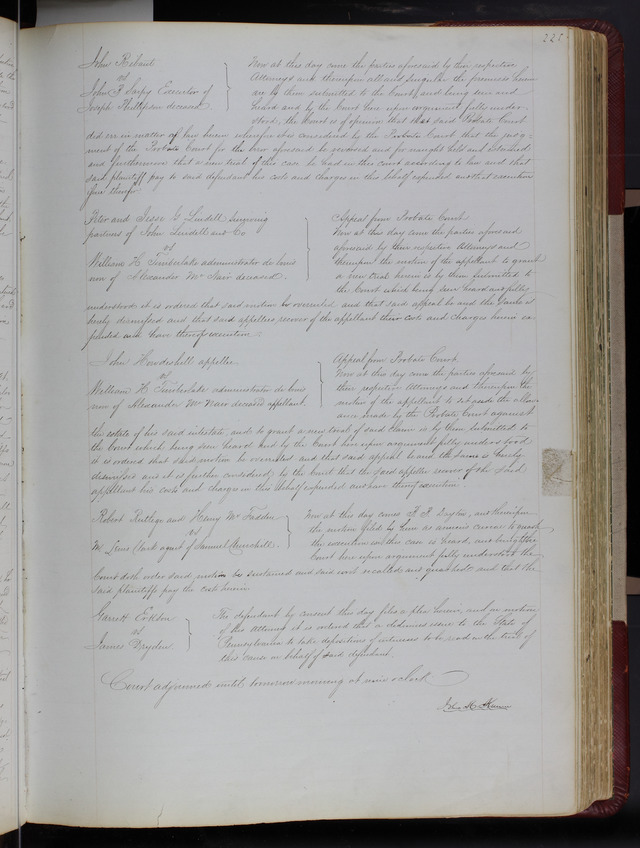 221
John Rebaut
vs
John F. Sarpy Executor of
Joseph Phillipson deceased
Now at this day come the parties aforesaid by their respective
Attorneys and thereupon all and singular the premises herein
are by them submitted to the Court, and being seen and
heard and by the Court here upon argument fully under-
stood, the Court is of opinion that the said Probate Court
did err in matter of law herein wherefore it is considered by the Probate Court that the judg-
ment of the Probate Court for the error aforesaid be reversed and for naught held and esteemed
and furthermore that a new trial of this case be had in this court according to law and that
said plaintiff pay to said defendant his costs and charges in this behalf expended and that execution
issue therefor
Peter and Jesse G Lindell surviving
partners of John Lindell and Co
vs
William H Timberlake administrator de bonis
non of Alexander McNair deceased.
Appeal from Probate Court
Now at this day come the parties aforesaid
aforesaid by their respective Attorneys and
thereupon the motion of the appellant to grant
a new trial herein is by them submitted to
the Court which being seen heard and fully
understood it is ordered that said motion be overruled, and that said appeal be and the same is
hereby dismissed and that said appellees recover of the appellant their costs and charges herein ex-
pended and have thereof execution.
John Howdeshell appellee
vs
William H Timberlake administrator de bonis
non of Alexander McNair deceased appellant.
Appeal from Probate Court
Now at this day come the parties aforesaid by
their respective Attorneys and thereupon the
motion of the appellant to set aside the allow-
ance made by the Probate Court against
the estate of his said intestate, and to grant a new trial of said claim is by them submitted to
the Court which being seen heard and by the Court here upon argument fully understood
it is ordered that said motion be overruled and that said appeal be and the same is hereby
dismissed and it is further considered by the Court that the said appellee recover of the said
appellant his costs and charges in this behalf expended and have thereof execution.
Robert Rutlege and Henry McFadden
vs
M. Lewis Clark agent of Samuel Churchill.
Now at this day comes and thereupon
the motion filed by him as amicus curiae to quash
the execution in this case is heard, and being by the
Court here upon argument fully understood the
Court doth order said motion be sustained and said writ recalled and quashed and that the
said plaintiffs pay the cost herein
Garrett
vs
James Dryden
The defendant by consent this day files a plea herein, and on motion
of his Attorney it is ordered that a dedimus issue to the State of
Pennsylvania to take depositions of witnesses to be read on the trial of
this cause on behalf of said defendant.
Court adjourned until tomorrow morning at nine o'clock
John M.